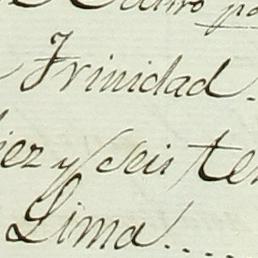 Trinidad.
iez y seis te
Lima....